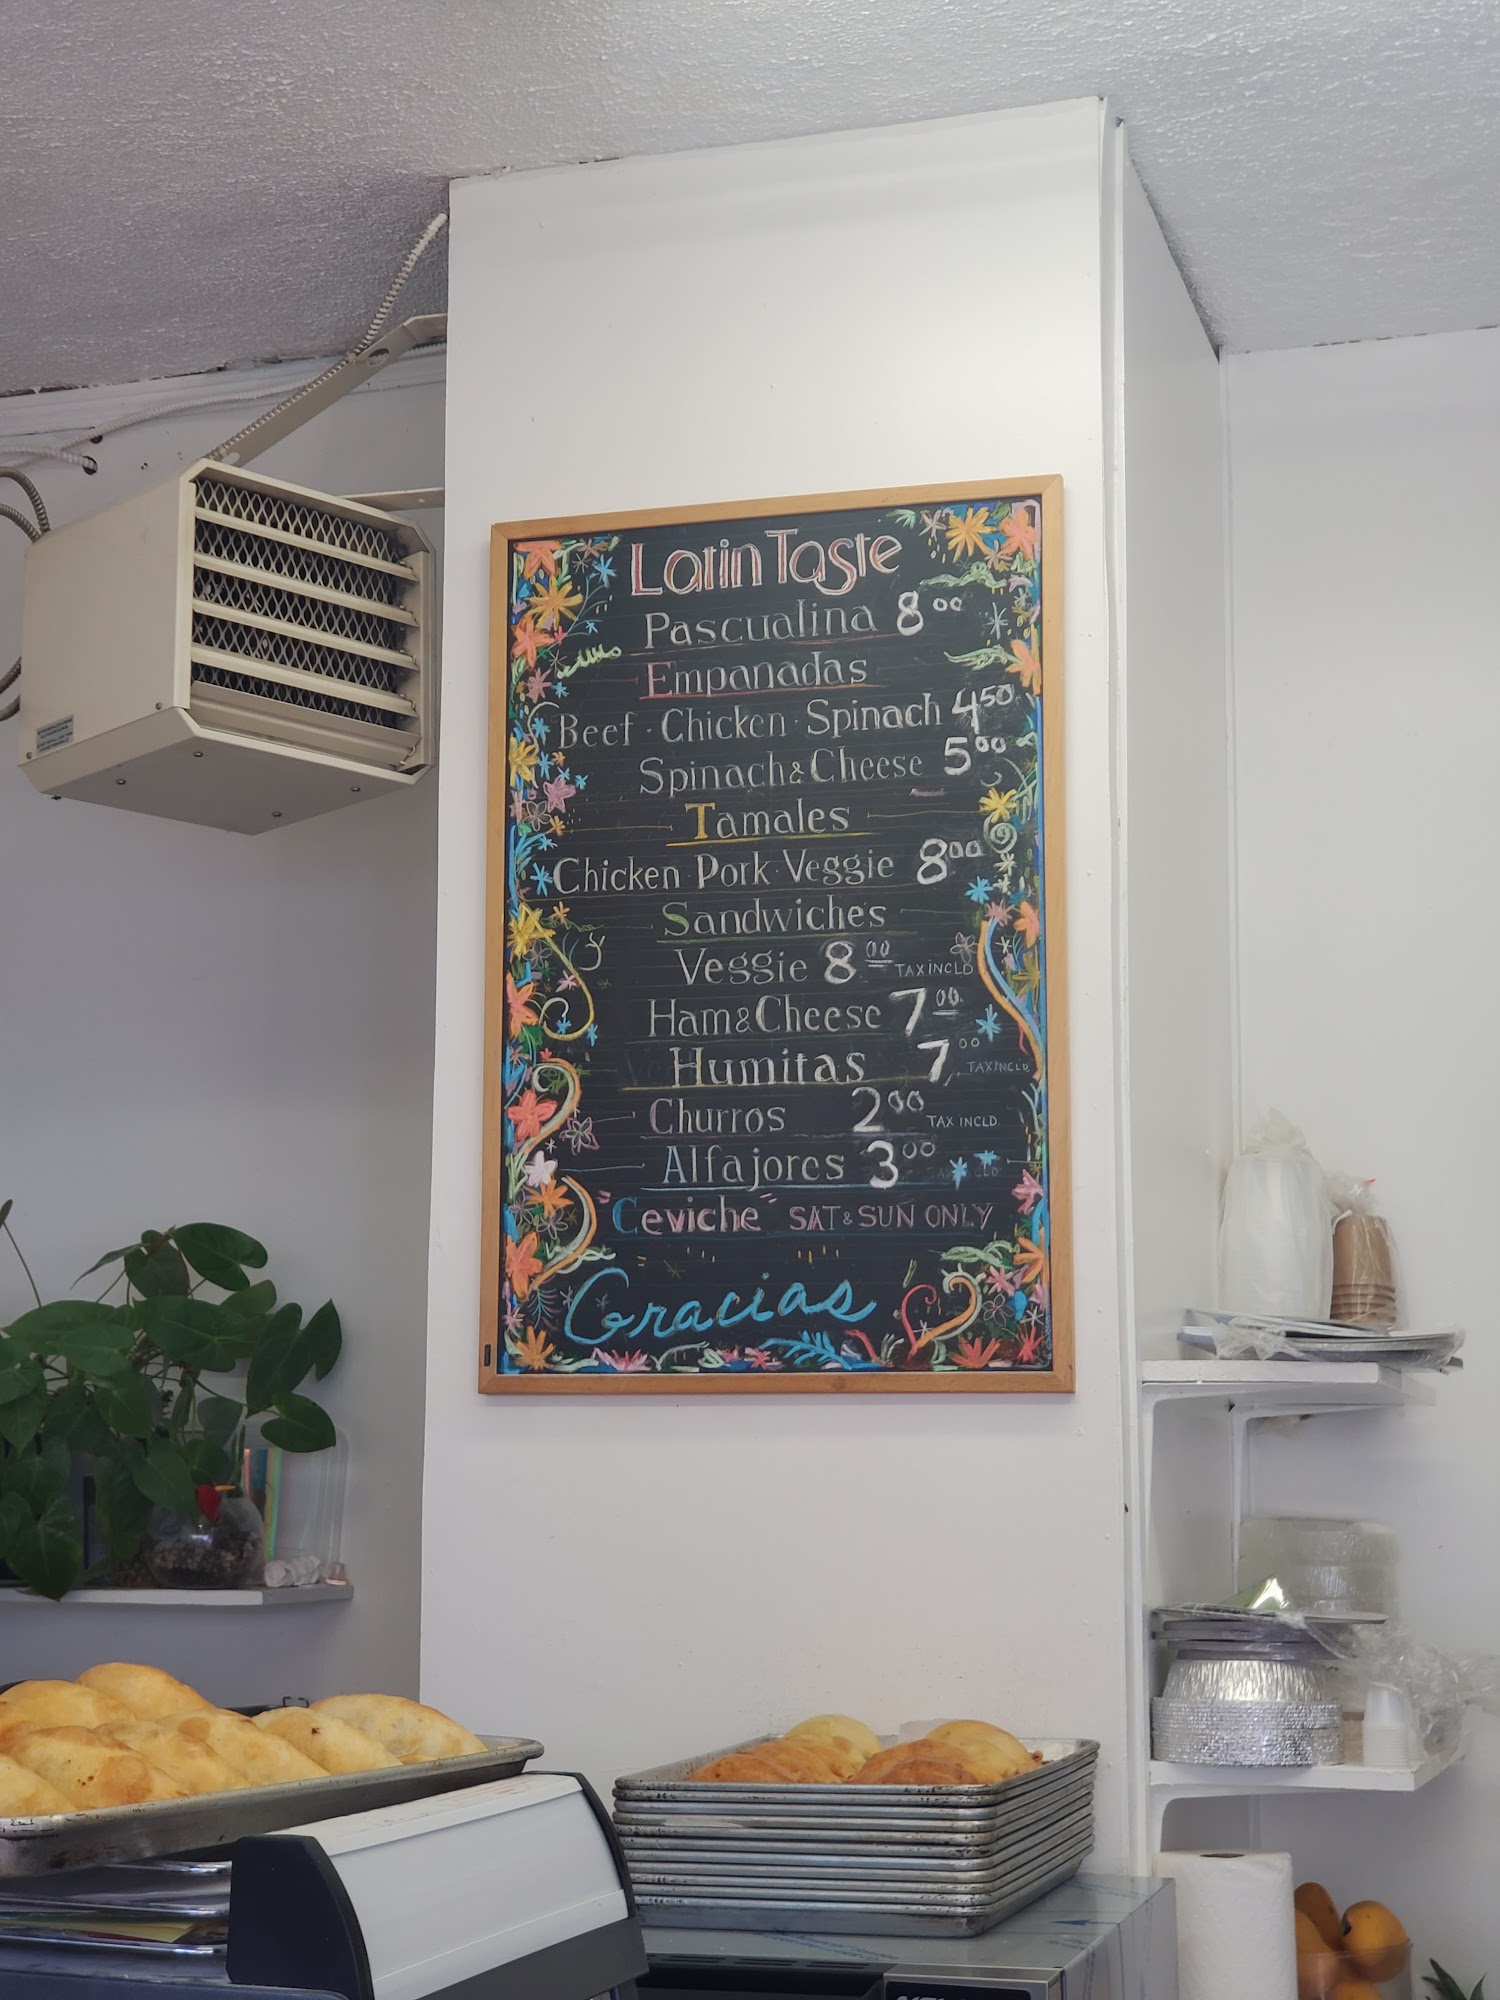 Latin Taste
Pascualina 8.00
Empanadas
Beef · Chicken · Spinach 4.50
Spinach & Cheese 5.00
Tamales
Chicken · Pork · Veggie 8.00
Sandwiches
Veggie 8.00 TAX INCLD
Ham & Cheese 7.00
Humitas 7.00 TAX INCLD.
Churros 2.00 TAX INCLD.
Alfajores 3.00
"Ceviche" SAT & SUN ONLY
Gracias